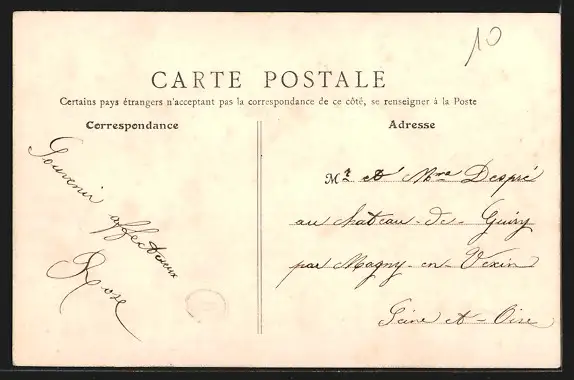 10
CARTE POSTALE
Certains pays étrangers n'acceptant pas la correspondance de ce côté, se renseigner à la Poste
Correspondance
Souvenir
affectueux
Rose
Adresse
Mr et Mme Despré
au chateau-de-Guiry
par Magny-en-Vexin
Seine et-Oise